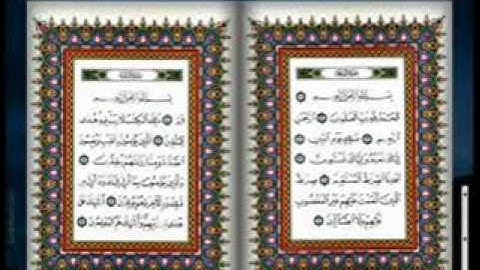 سورة الفاتحة
بسم الله الرحمن الرحيم
الحمد لله رب العلمين الرحمن
الرحيم ملك يوم الدين
إياك نعبد وإياك نستعين
اهدنا الصرط المستقيم صرط
الذين أنعمت عليهم غير المغضوب
عليهم ولا الضالين
سورة البقرة
بسم الله الرحمن الرحيم
الم ذلك الكتب لا ريب فيه هدى
للمتقين الذين يؤمنون بالغيب ويقيمون
الصلوة ومما رزقنهم ينفقون
والذين يؤمنون بما أنزل إليك وما أنزل من
قبلك وبالأخرة هم يوقنون أولئك على
هدى من ربهم وأولئك هم المفلحون